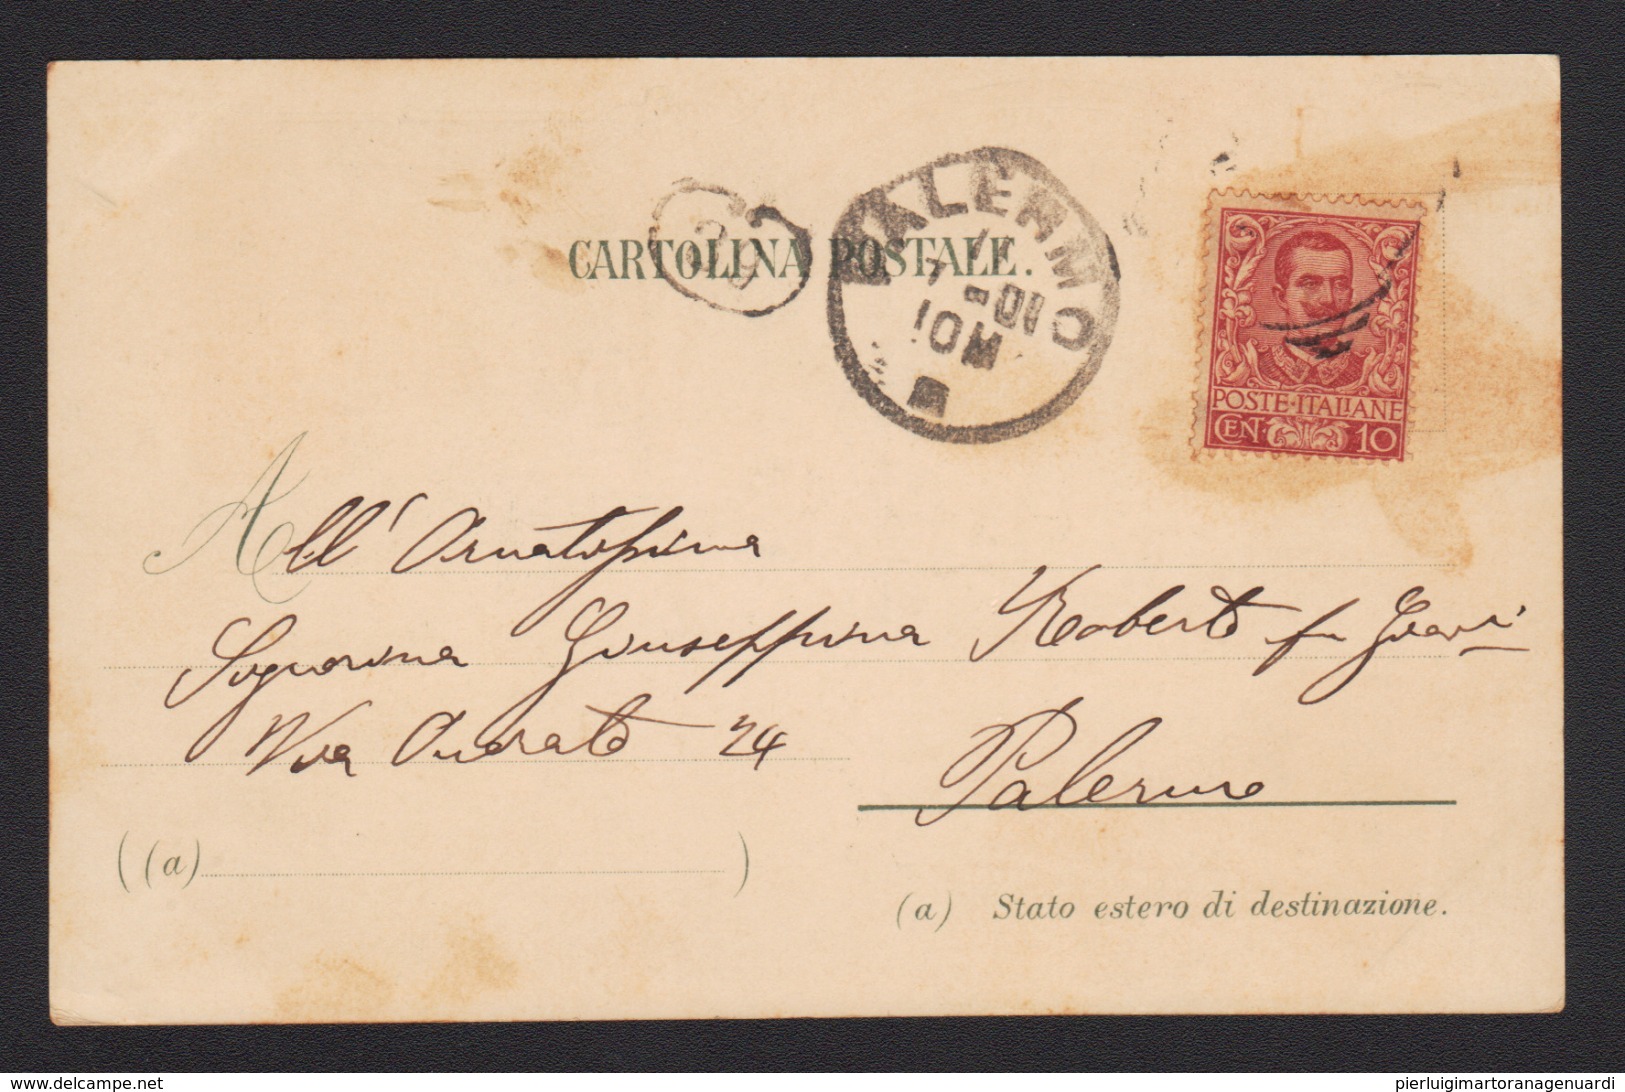 CARTOLINA POSTALE.
PALERMO
11
7-01
10M
POSTE·ITALIANE
CEN. 10
All' Ornatissima
Signorina Giuseppina Roberto fu
Via 24
Palermo
( (a) )
(a) Stato estero di destinazione.
delcampe.net
pierluigimartoranagenuardi